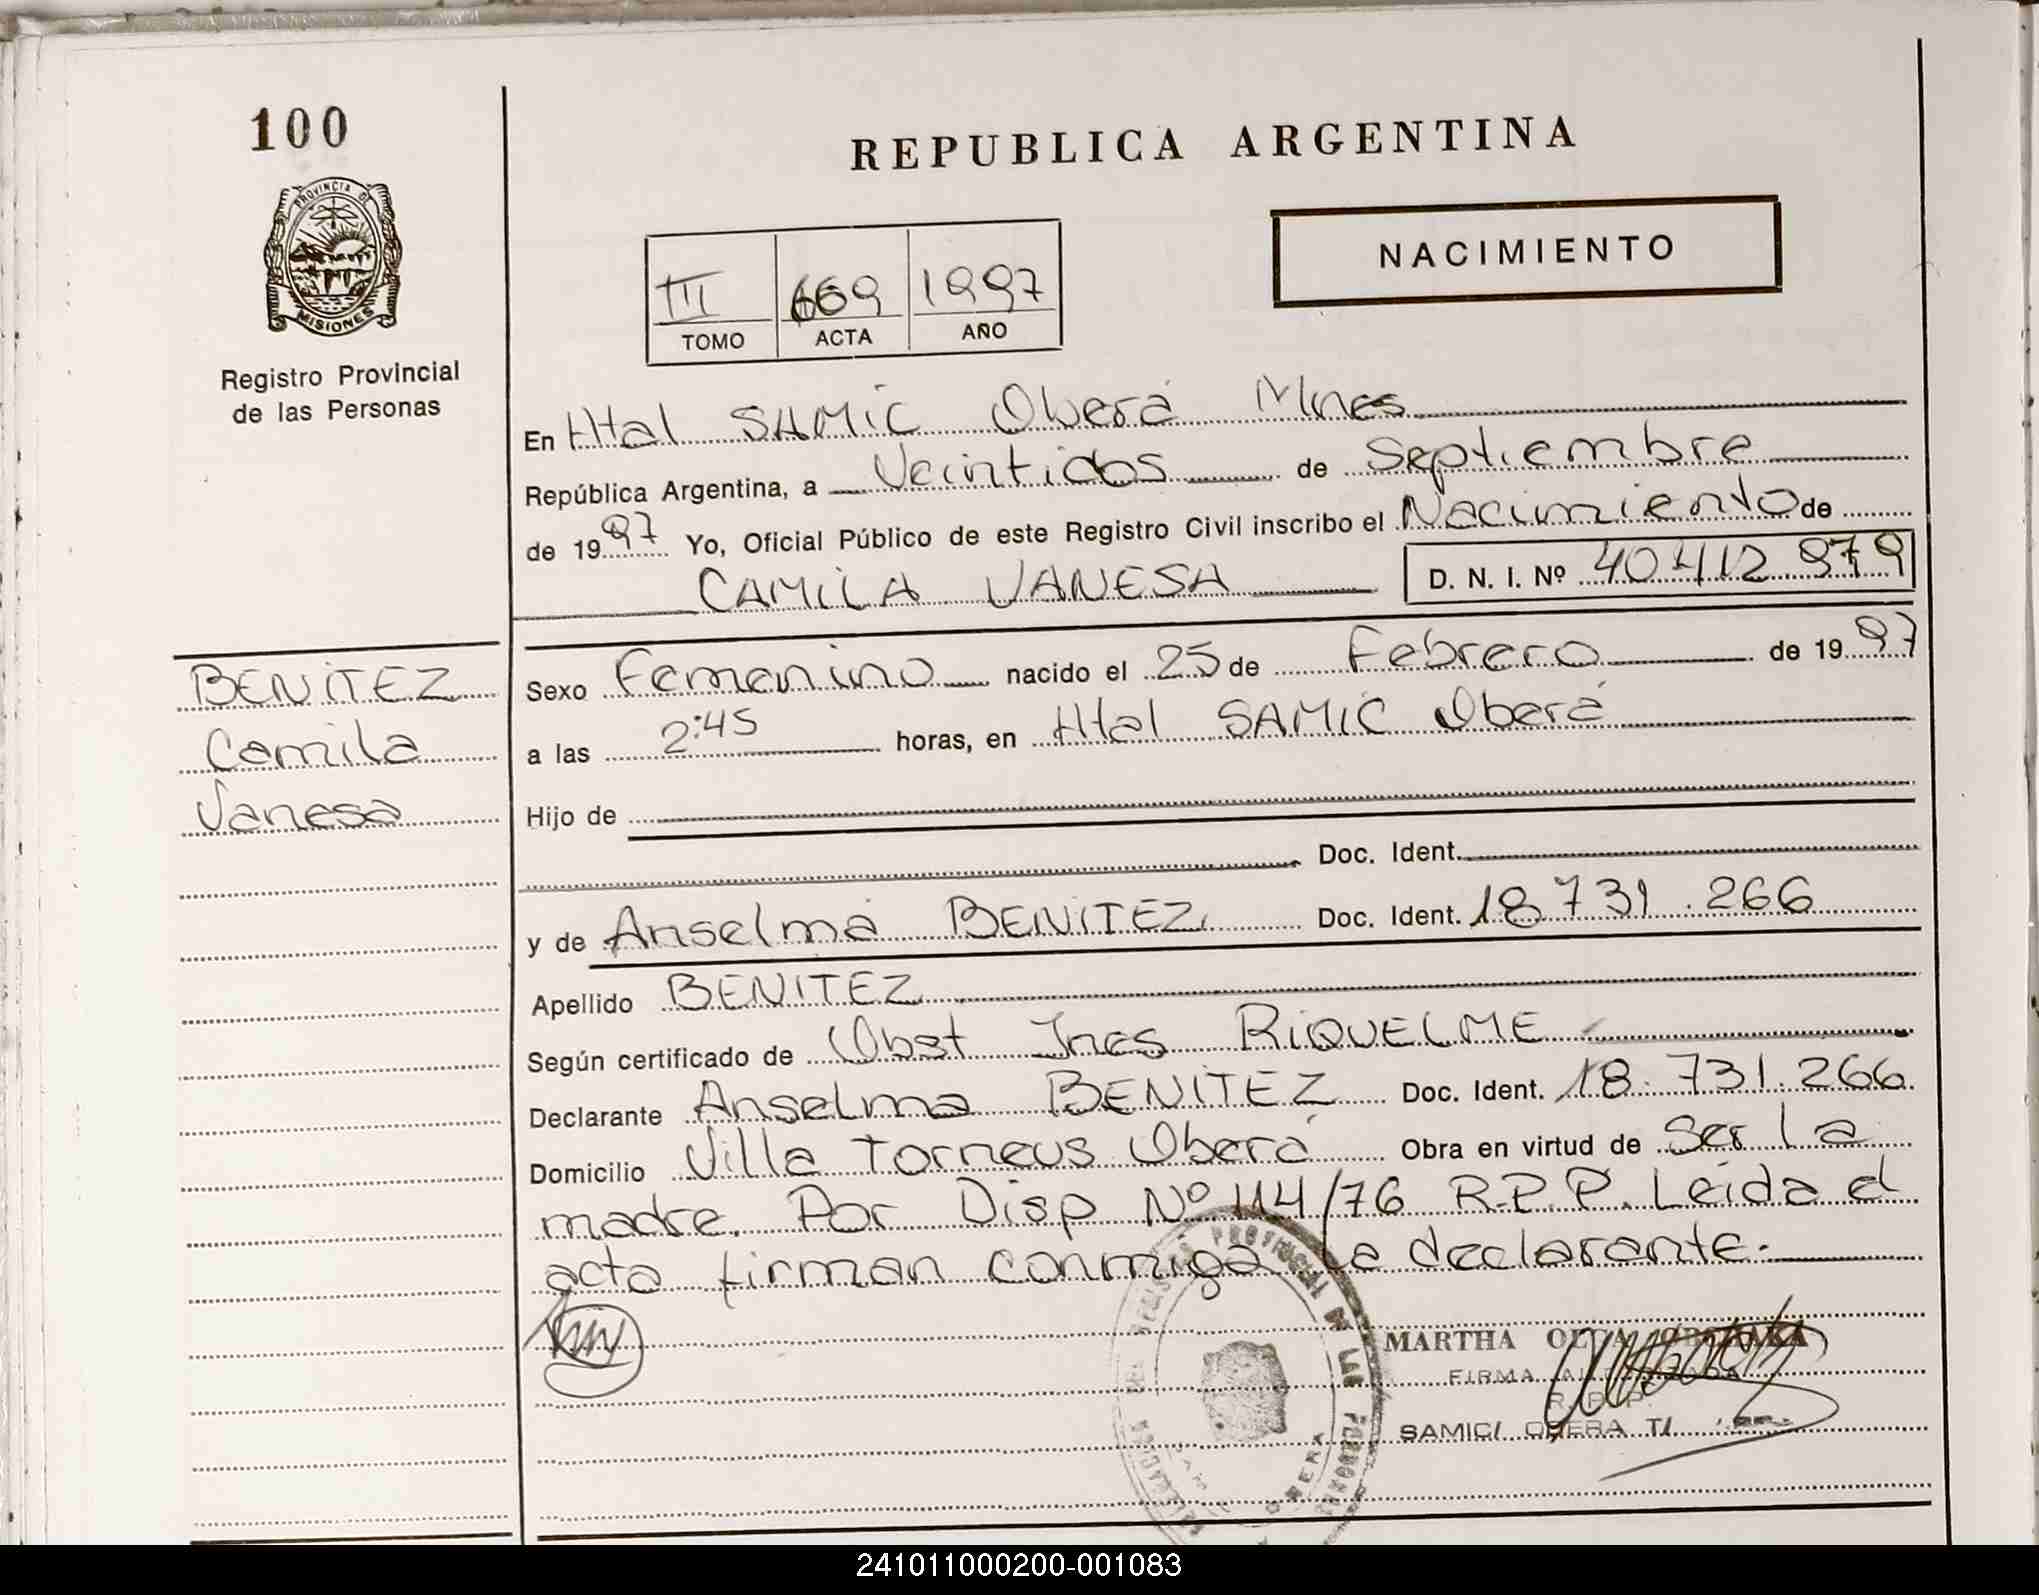 100
REPUBLICA ARGENTINA
NACIMIENTO
PROVINCIA DE
MISIONES
III 669 1997
TOMO ACTA AÑO
Registro Provincial
de las Personas
En Htal SAMIC Oberá Mnes
República Argentina, a Veintidos de Septiembre
de 1997 Yo, Oficial Público de este Registro Civil inscribo el Nacimiento de
CAMILA VANESA D. N. I. Nº 40412979
BENITEZ
Camila
Vanesa
Sexo Femenino nacido el 25 de Febrero de 1997
a las 2:45 horas, en Htal SAMIC Oberá
Hijo de
Doc. Ident.
y de Anselma BENITEZ Doc. Ident. 18.731.266
Apellido BENITEZ
Según certificado de Obst Ines RIQUELME
Declarante Anselma BENITEZ Doc. Ident. 18.731.266
Domicilio Villa Torneus Oberá Obra en virtud de Ser la
madre. Por Disp Nº 114/76 R.P.P. Leida el
acta firman conmigo la declarante.
PROVINCIAL DE LAS PERSONAS
OBERA
MARTHA
FIRMA
SAMIC/ OBERA
241011000200-001083